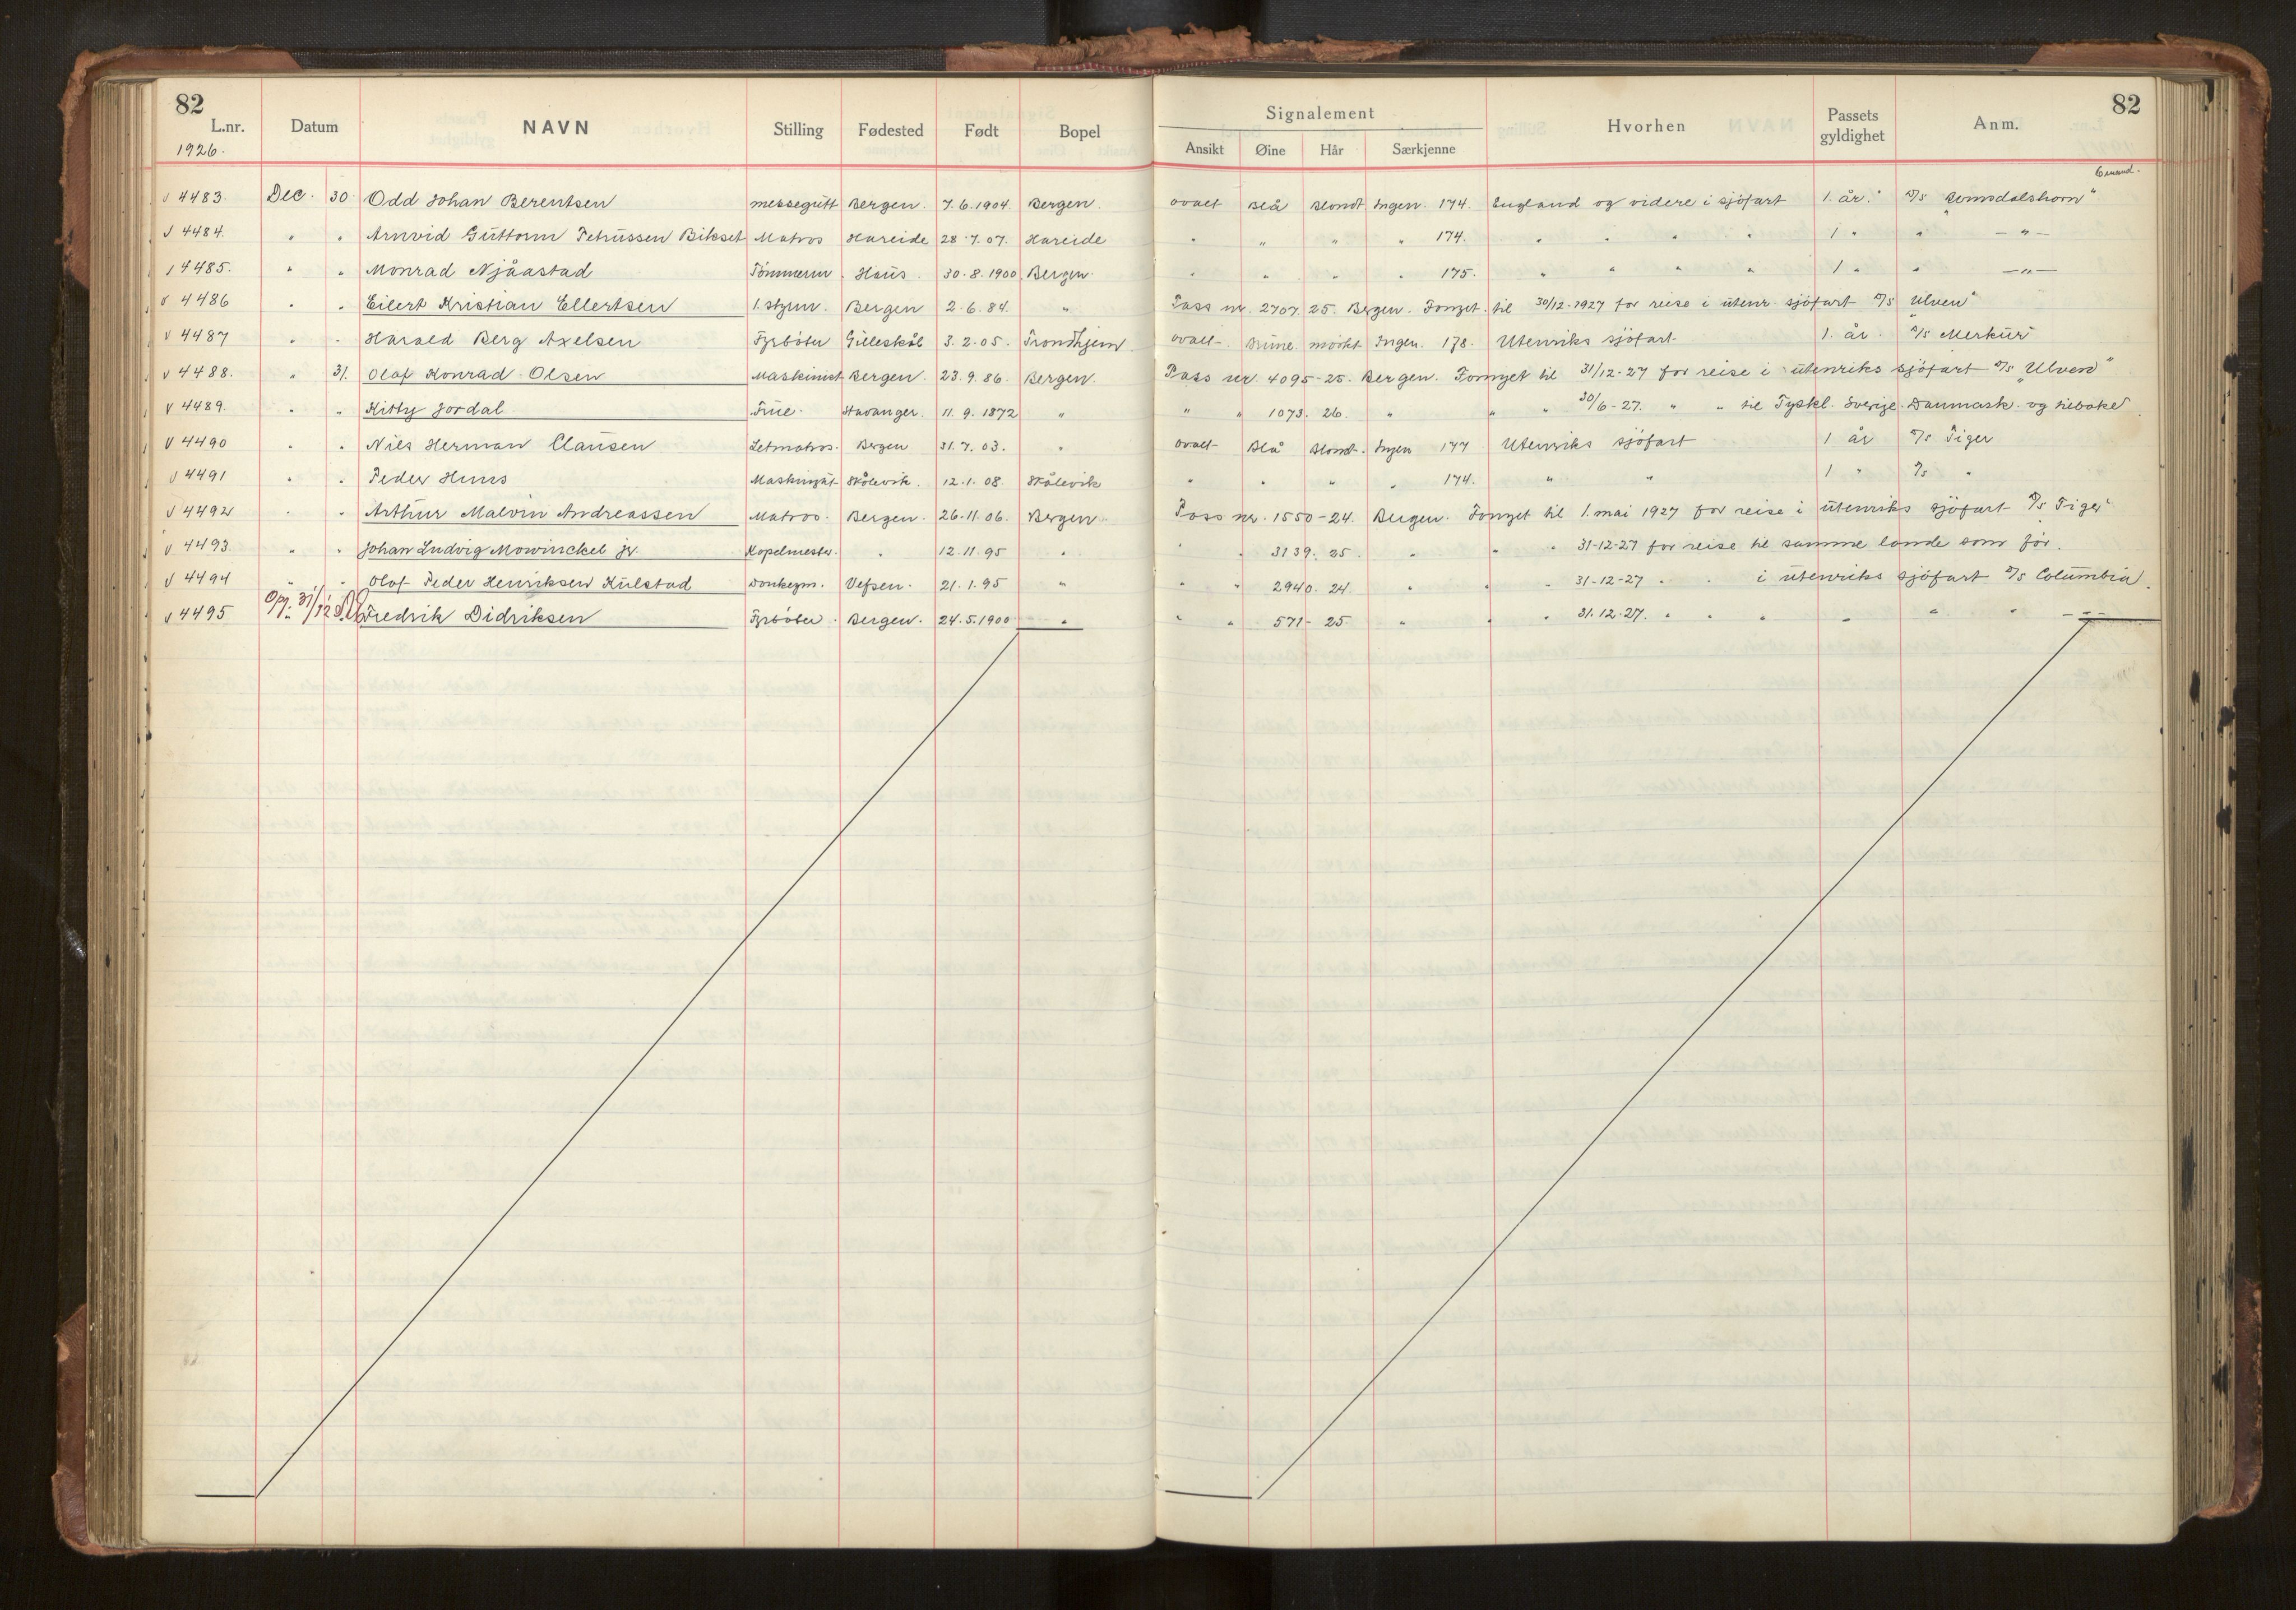 82 82
L.nr. Datum NAVN Stilling Fødested Født Bopel Signalement Ansikt Øine Hår Særkjenne Hvorhen Passets gyldighet Anm.
1926.
6 mând.
v 4483. Dec. 30. Odd Johan Berentsen messegutt Bergen. 7.6.1904. Bergen. ovalt Blå Blondt Ingen. 174. England og videre i sjöfart 1. år. D/s "Romsdalshorn"
v 4484. " " Arnvid Guttorm Petrussen Bikset Matros Hareide 28.7.07. Hareide " " " " 174. " " " " 1 " " — " —
v 4485. " " Monrad Njåastad Tömmerm. Haus. 30.8.1900. Bergen. " " " " 175. " " " " 1 " " — " —
v 4486 " " Eilert Kristian Ellertsen 1. styrm. Bergen 2.6.84. " Pass nr. 2707. 25. Bergen. Fornyet. til 30/12-1927 for reise i utenr. sjöfart D/s Ulven"
v 4487 " " Harald Berg Axelsen Fyrböter Gilleskål 3.2.05. Trondhjem ovalt brune mörkt Ingen. 178. Utenriks sjöfart 1. år. D/s Merkur
v 4488. " 31. Olaf Konrad Olsen Maskinist Bergen. 23.9.86. Bergen. Pass nr. 4095-25. Bergen. Fornyet til 31/12-27 for reise i utenriks sjöfart D/s "Ulven"
v 4489. " " Kitty Jordal Frue. Stavanger. 11.9.1872 " " " 1073. 26. " " " 30/6-27. " " til Tyskl. Sverige. Danmark. og tilbake.
v 4490 " " Nils Herman Clausen Letmatros. Bergen 31.7.03. " ovalt Blå Blondt. Ingen 177 Utenriks sjöfart 1 år D/s Tiger
v 4491 " " Peder Huus Maskingut Skålevik. 12.1.08. Skålevik " " " " 174. " " 1 " D/s "
v 4492 " " Arthur Malvin Andreassen Matros. Bergen. 26.11.06. Bergen. Pass nr. 1550-24. Bergen. Fornyet til 1. mai 1927 for reise i utenriks sjöfart D/s Tiger"
v 4493. " " Johan Ludvig Mowinckel jr. Kapelmester. " 12.11.95 " " " 3139. 25. " " " 31-12-27 for reise til samme lande som för.
v 4494 " " Olaf Peder Henriksen Kulstad Donkeym. Vefsen. 21.1.95 " " " 2940. 24. " " " 31-12-27 " " i utenriks sjöfart D/s Columbia.
v 4495 Opg. 31/12 Fredrik Didriksen Fyrböter. Bergen. 24.5.1900 " " " 571-25 " " " 31.12.27. " " " " " " — " —